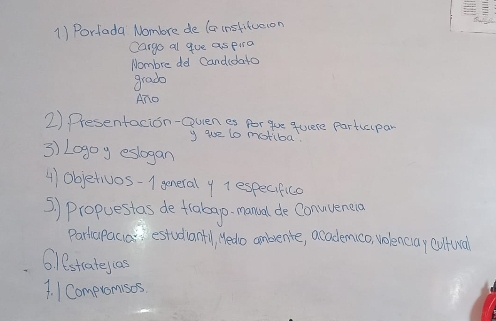 1) Portada Nombre de la institucion
Cargo al que aspira
Nombre del Candidato
grado
Año
2) Presentación - Quien es por que quiere participar
y que lo motiba.
3) Logo y eslogan
4) Objetivos - 1 general y 1 especifico
5) Propuestas de trabajo - manual de Convivencia
Participacion estudiantil, Medio ambiente, academico, violencia y cultural
6.) Estratejias
7.) Compromisos